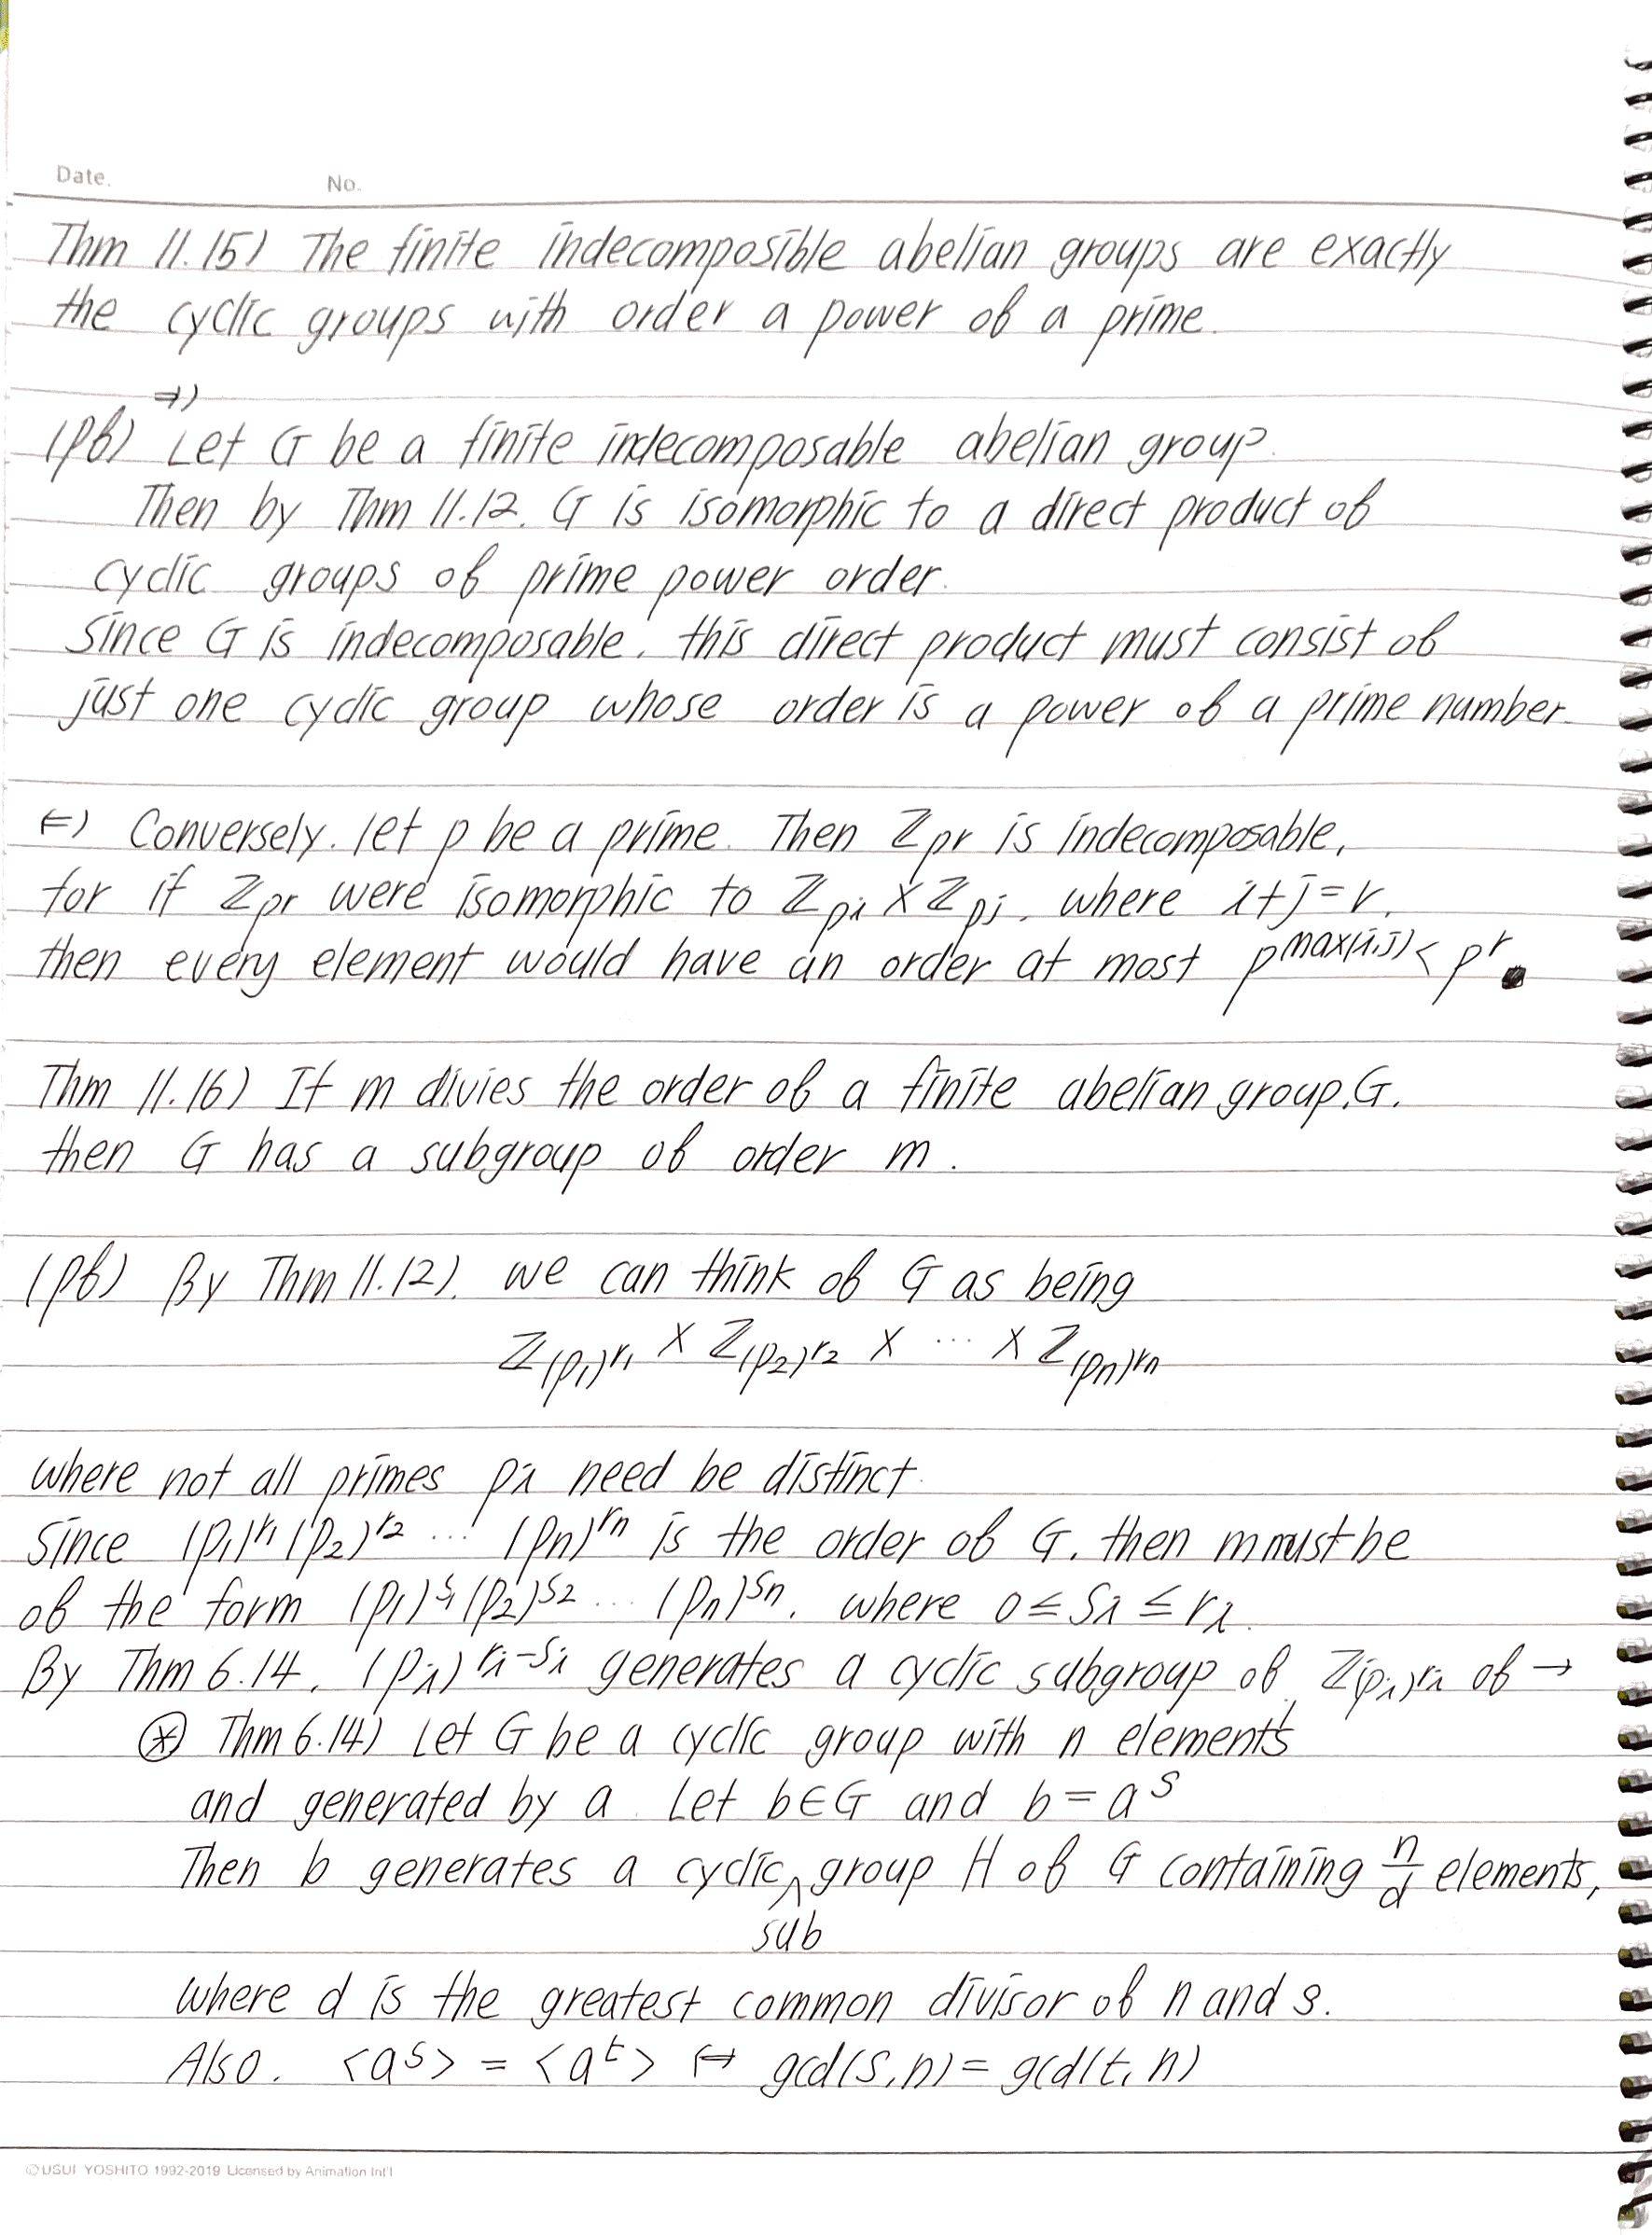 Date. No.
Thm 11.15) The finite indecomposible abelian groups are exactly
the cyclic groups with order a power of a prime.
⇒)
(pf) Let G be a finite indecomposable abelian group.
Then by Thm 11.12. G is isomorphic to a direct product of
cyclic groups of prime power order.
Since G is indecomposable, this direct product must consist of
just one cyclic group whose order is a power of a prime number.
⇐) Conversely. let p be a prime. Then ℤ_{p^r} is indecomposable,
for if ℤ_{p^r} were isomorphic to ℤ_{p^i} × ℤ_{p^j}, where i+j=r,
then every element would have an order at most p^{max(i,j)} < p^r.
Thm 11.16) If m divies the order of a finite abelian group, G.
then G has a subgroup of order m.
(pf) By Thm 11.12). we can think of G as being
ℤ_{(p₁)^{r₁}} × ℤ_{(p₂)^{r₂}} × ⋯ × ℤ_{(pₙ)^{rₙ}}
where not all primes p_i need be distinct.
Since (p₁)^{r₁}(p₂)^{r₂} ⋯ (pₙ)^{rₙ} is the order of G. then m must be
of the form (p₁)^{s₁}(p₂)^{s₂} ⋯ (pₙ)^{sₙ}. where 0 ≤ s_i ≤ r_i.
By Thm 6.14, (p_i)^{r_i-s_i} generates a cyclic subgroup of ℤ_{(p_i)^{r_i}} of →
⊛ Thm 6.14) Let G be a cyclic group with n elements
and generated by a. Let b∈G and b = a^s
Then b generates a cyclic ∧ group H of G containing n/d elements,
sub
where d is the greatest common divisor of n and s.
Also. <a^s> = <a^t> ⇔ gcd(s,n) = gcd(t,n)
©USUI YOSHITO 1992-2019 Licensed by Animation Int'l